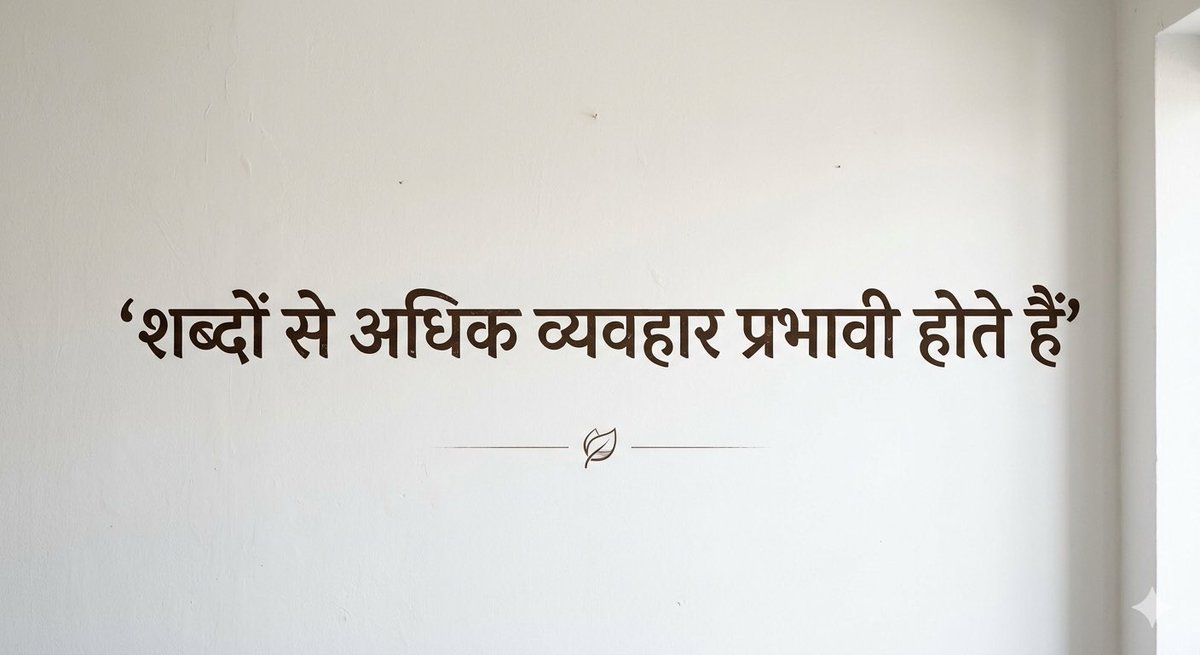 ‘शब्दों से अधिक व्यवहार प्रभावी होते हैं’